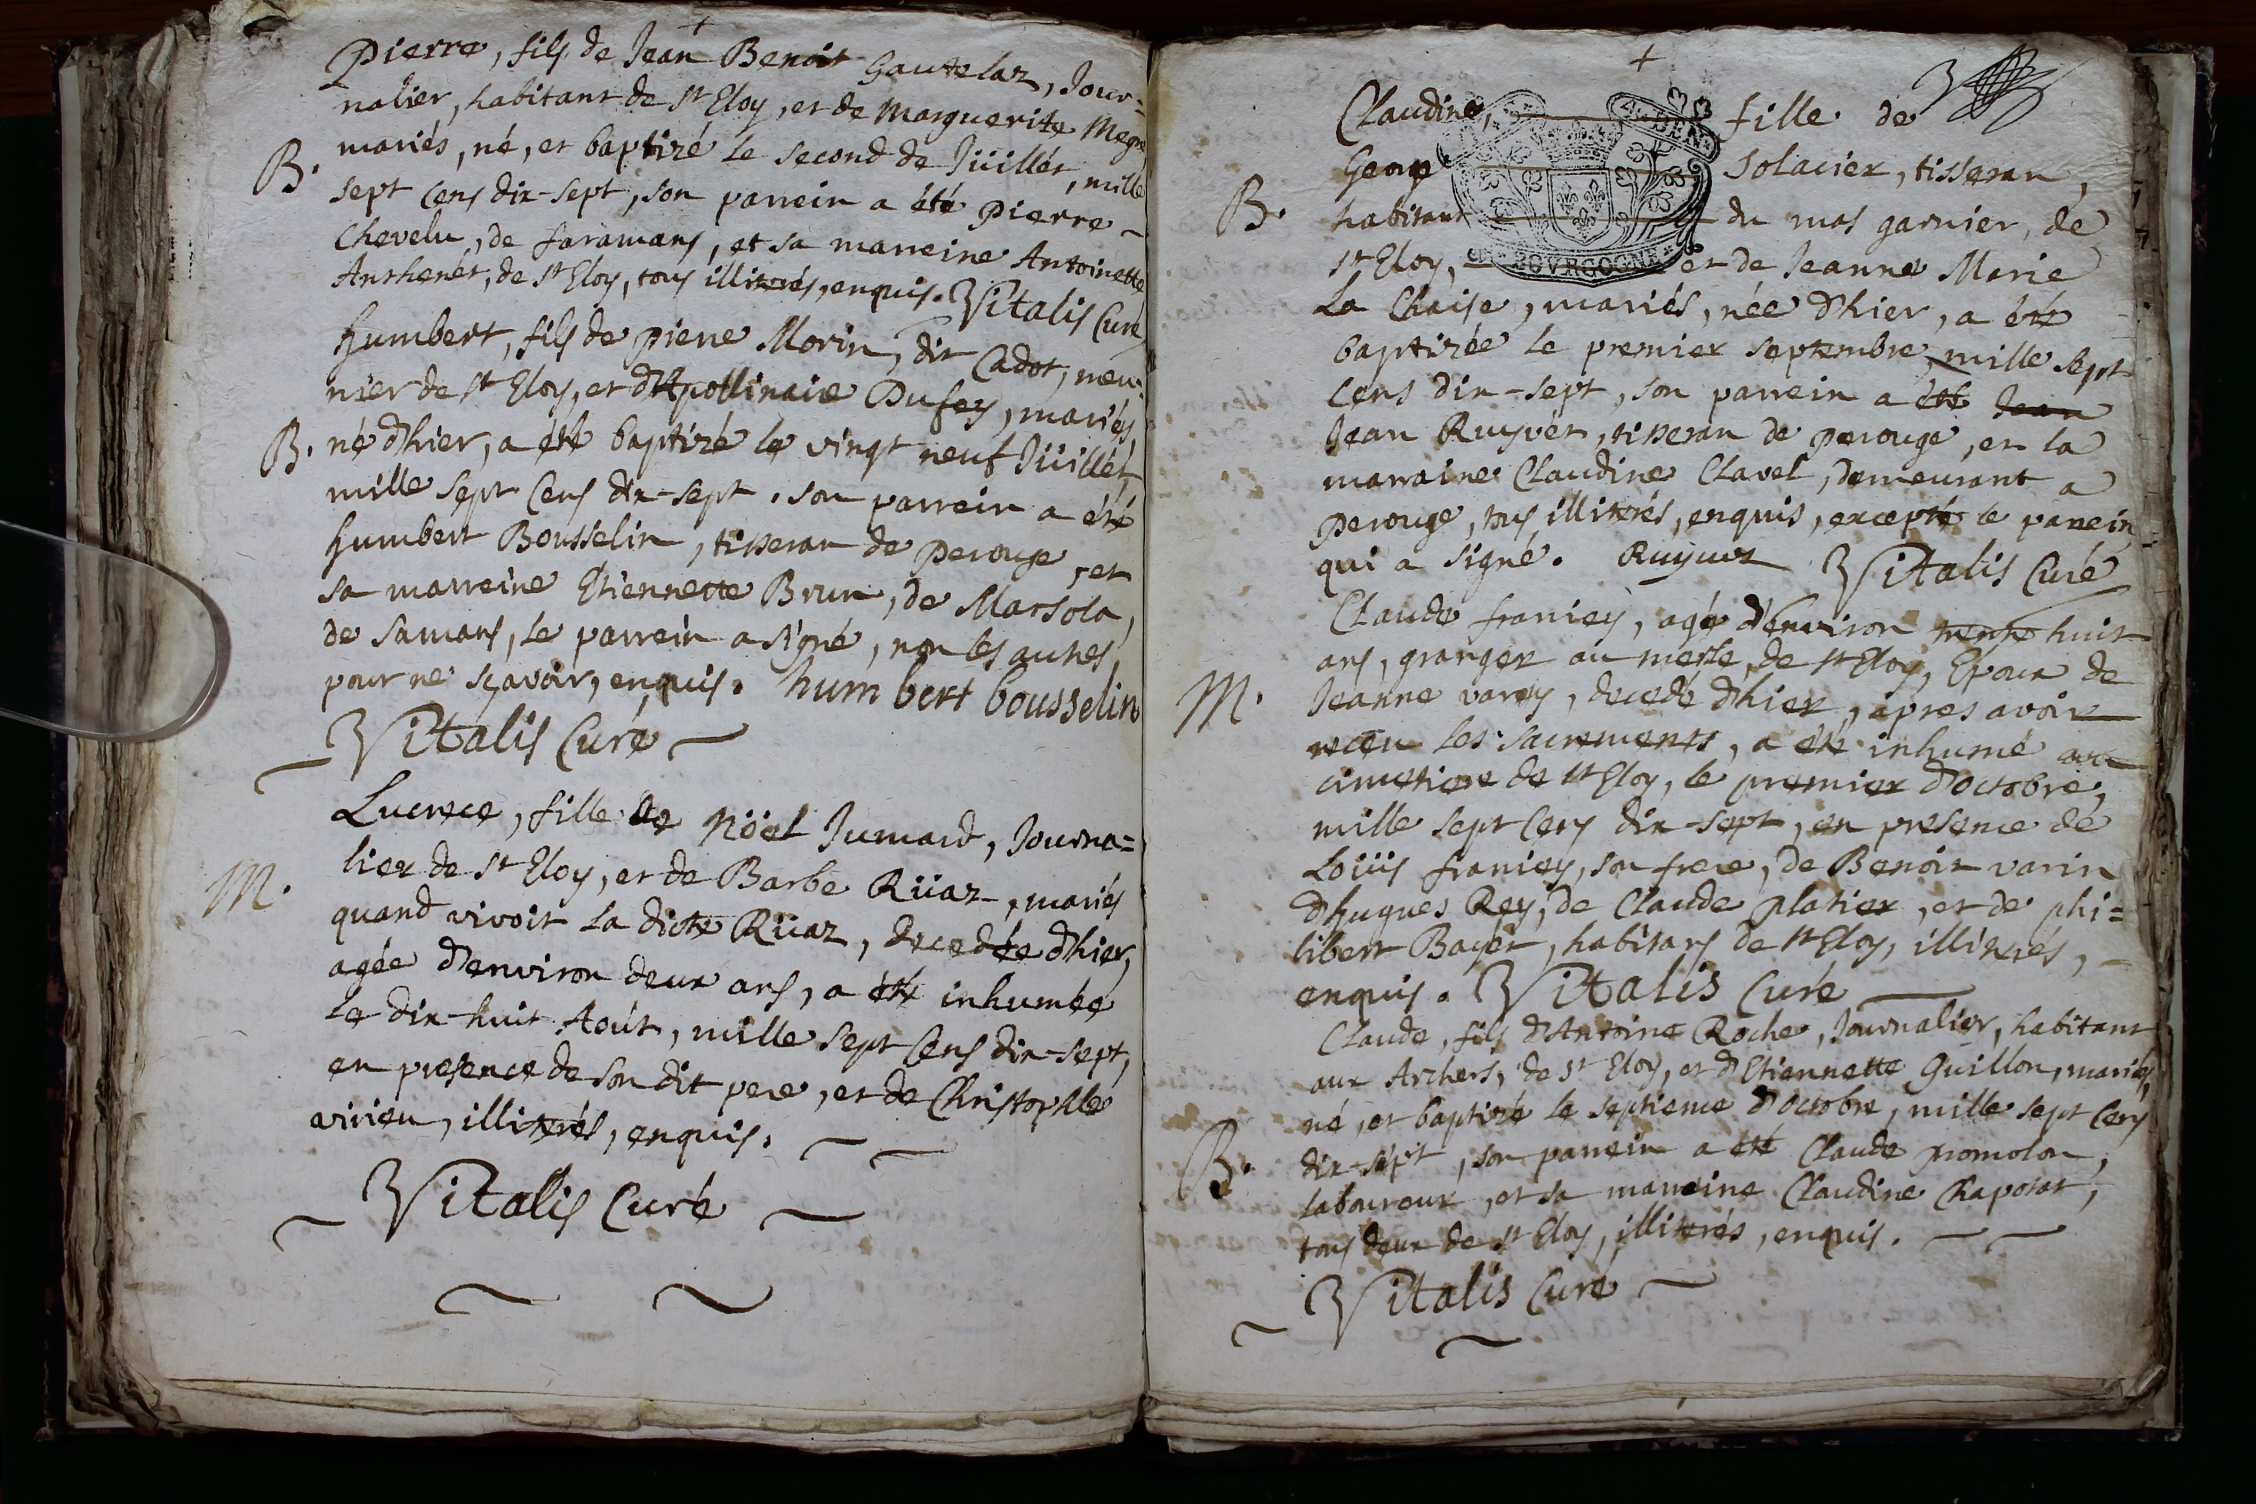 +
Pierre, fils de Jean Benoit Gautelaz, Jour=
nalier, habitant de St Eloy, et de Marguerite
B. mariés, né, et baptizé le second de Jüillét, mille
sept cens dix-sept, son parrein a été Pierre
Chevelu, de faramans, et sa marreine Antoinette
Anthenét, de St Eloy, tous illiterés, enquis. Vitalis Curé
humbert, fils de Pierre Morin, dit Cadot, meu=
nier de St Eloy, et d'Apollinaire Dufey, mariés,
B. né d'hier, a été baptizé le vingt neuf Jüillét,
mille sept cens dix-sept. son parrein a été
humbert Bousselin, tisseran de Perouge, et
sa marreine Etiennette Brun, de Marsola,
de Samans, le parrein a signé, non les autres,
pour ne sçavoir, enquis. humbert bousselin
Vitalis Curé
Lucrece, fille de Nöel Jumard, Journa=
M. lier de St Eloy, et de Barbe Rüaz, mariés
quand vivoit la dicte Rüaz, decedée d'hier,
agée d'environ deux ans, a été inhumée
le dix-huit Août, mille sept cens dix-sept,
en presence de son dit pere, et de Christophle
virieu, illiterés, enquis.
Vitalis Curé
+
Claudine, fille de
Solacier, tisseran,
B. habitant du mas garnier, de
St Eloy, et de Jeanne Marie
BOVRGOGNE
La Chaise, mariés, née d'hier, a été
baptizée le premier septembre, mille sept
cens dix-sept, son parrein a été Jean
Jean Ruyvét, tisseran de perouge, et la
marraine Claudine Clavel, demeurant a
perouge, tous illiterés, enquis, excepté le parrein
qui a signé. Ruyvet Vitalis Curé
Claude franiey, agé d'environ trente huit
ans, granger au merle, de St Eloy, Epoux de
M. Jeanne varey, decedé d'hier, apres avoir
receu les sacrements, a été inhumé au
cimetiere de St Eloy, le premier d'octobre,
mille sept cens dix-sept, en presence de
Loüis franiey, son frere, de Benoit varin
d'hugues Rey, de Claude platier, et de phi=
libert Bayét, habitans de St Eloy, illiterés,
enquis. Vitalis Curé
Claude, fils d'Antoine Roche, Journalier, habitant
aux Archers, de St Eloy, et d'Etiennette Guillon, mariés,
né, et baptizé le septieme d'octobre, mille sept cens
B. dix-sept, son parrein a été Claude promolon,
laboureur, et sa marreine Claudine Chaposat,
tous deux de St Eloy, illiterés, enquis.
Vitalis Curé